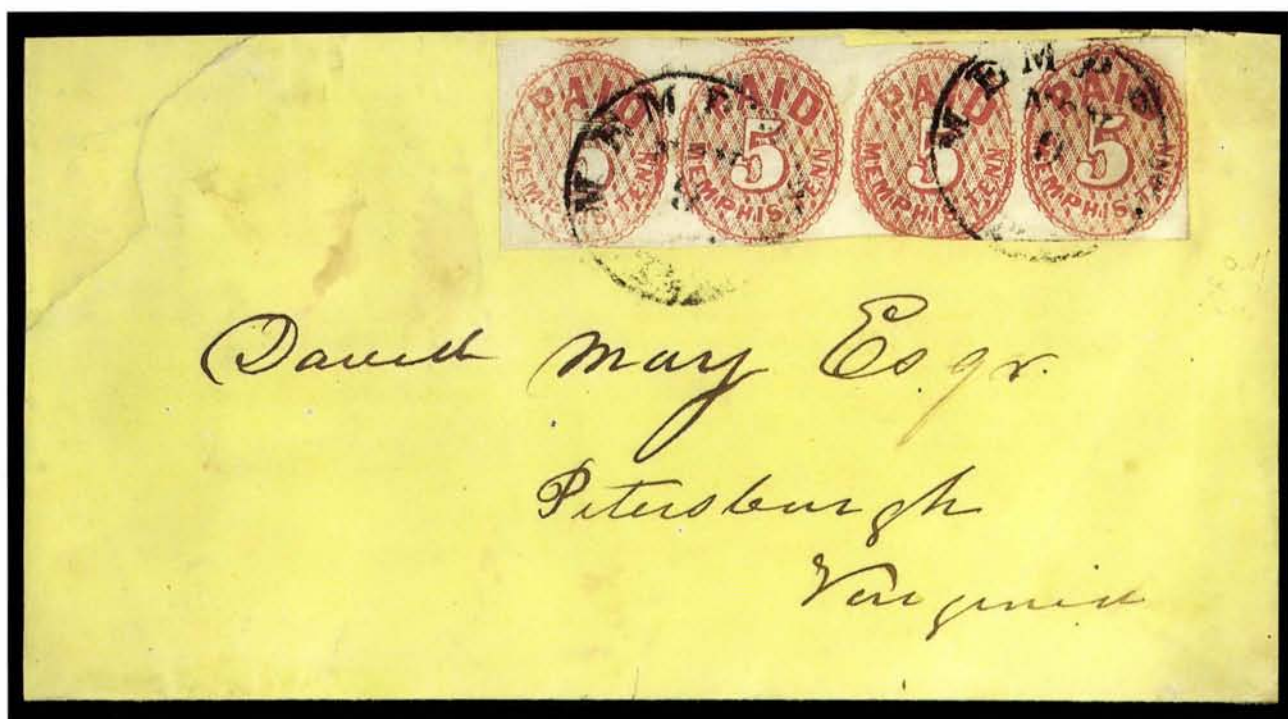 PAID 5 MEMPHIS, TENN
PAID 5 MEMPHIS, TENN
PAID 5 MEMPHIS, TENN
PAID 5 MEMPHIS, TENN
May Esqr.
Petersburgh
Virginia